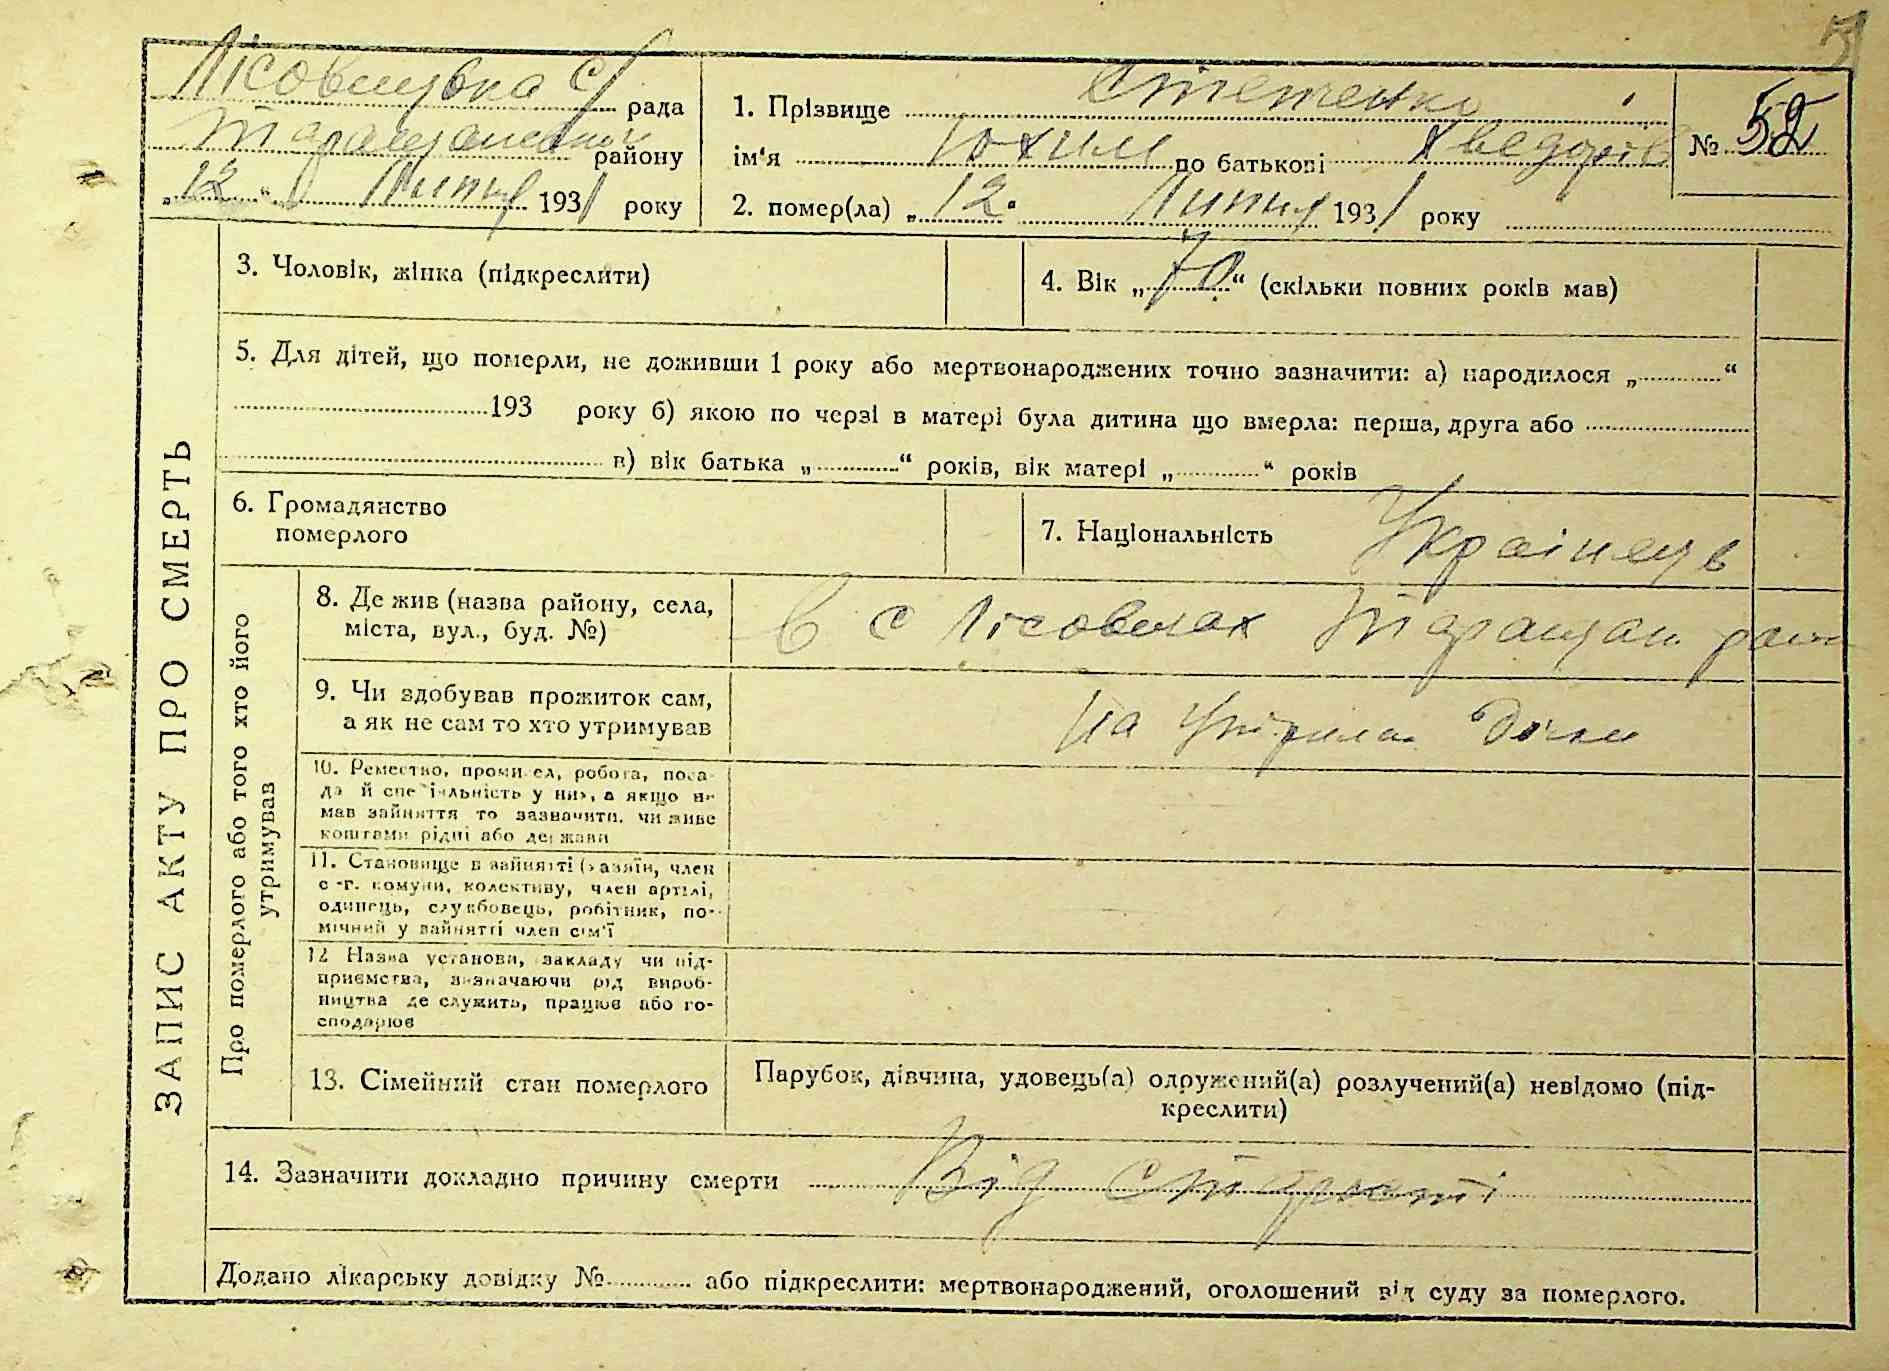 Лісовицька С/ рада
Таращанського району
„12“ Липня 1931 року
1. Прізвище Степенко
ім'я Юхим по батькові Хведорів
№ 52
2. помер(ла) „12. Липня 1931 року
3. Чоловік, жінка (підкреслити)
4. Вік „70“ (скільки повних років мав)
5. Для дітей, що померли, не доживши 1 року або мертвонароджених точно зазначити: а) народилося „............“
193 року б) якою по черзі в матері була дитина що вмерла: перша, друга або
в) вік батька „............“ років, вік матері „............“ років
6. Громадянство
померлого
7. Національність Українець
ЗАПИС АКТУ ПРО СМЕРТЬ
Про померлого або того хто його
утримував
8. Де жив (назва району, села,
міста, вул., буд. №)
В с Лісовичах Таращан. райо
9. Чи здобував прожиток сам,
а як не сам то хто утримував
На Утриман Дочки
10. Ремество, промисел, робота, поса-
да й спеціяльність у них, а якщо не
мав зайняття то зазначити, чи живе
коштами рідні або держави
11. Становище в зайнятті (хазяїн, член
с.-г. комуни, колективу, член артілі,
одинець, службовець, робітник, по-
мічний у зайнятті член сім'ї
12 Назва установи, закладу чи під-
приємства, зазначаючи рід вироб-
ництва де служить, працює або го-
сподарює
13. Сімейний стан померлого
Парубок, дівчина, удовець(а) одружений(а) розлучений(а) невідомо (під-
креслити)
14. Зазначити докладно причину смерти Від старості
Додано лікарську довідку №............ або підкреслити: мертвонароджений, оголошений від суду за померлого.